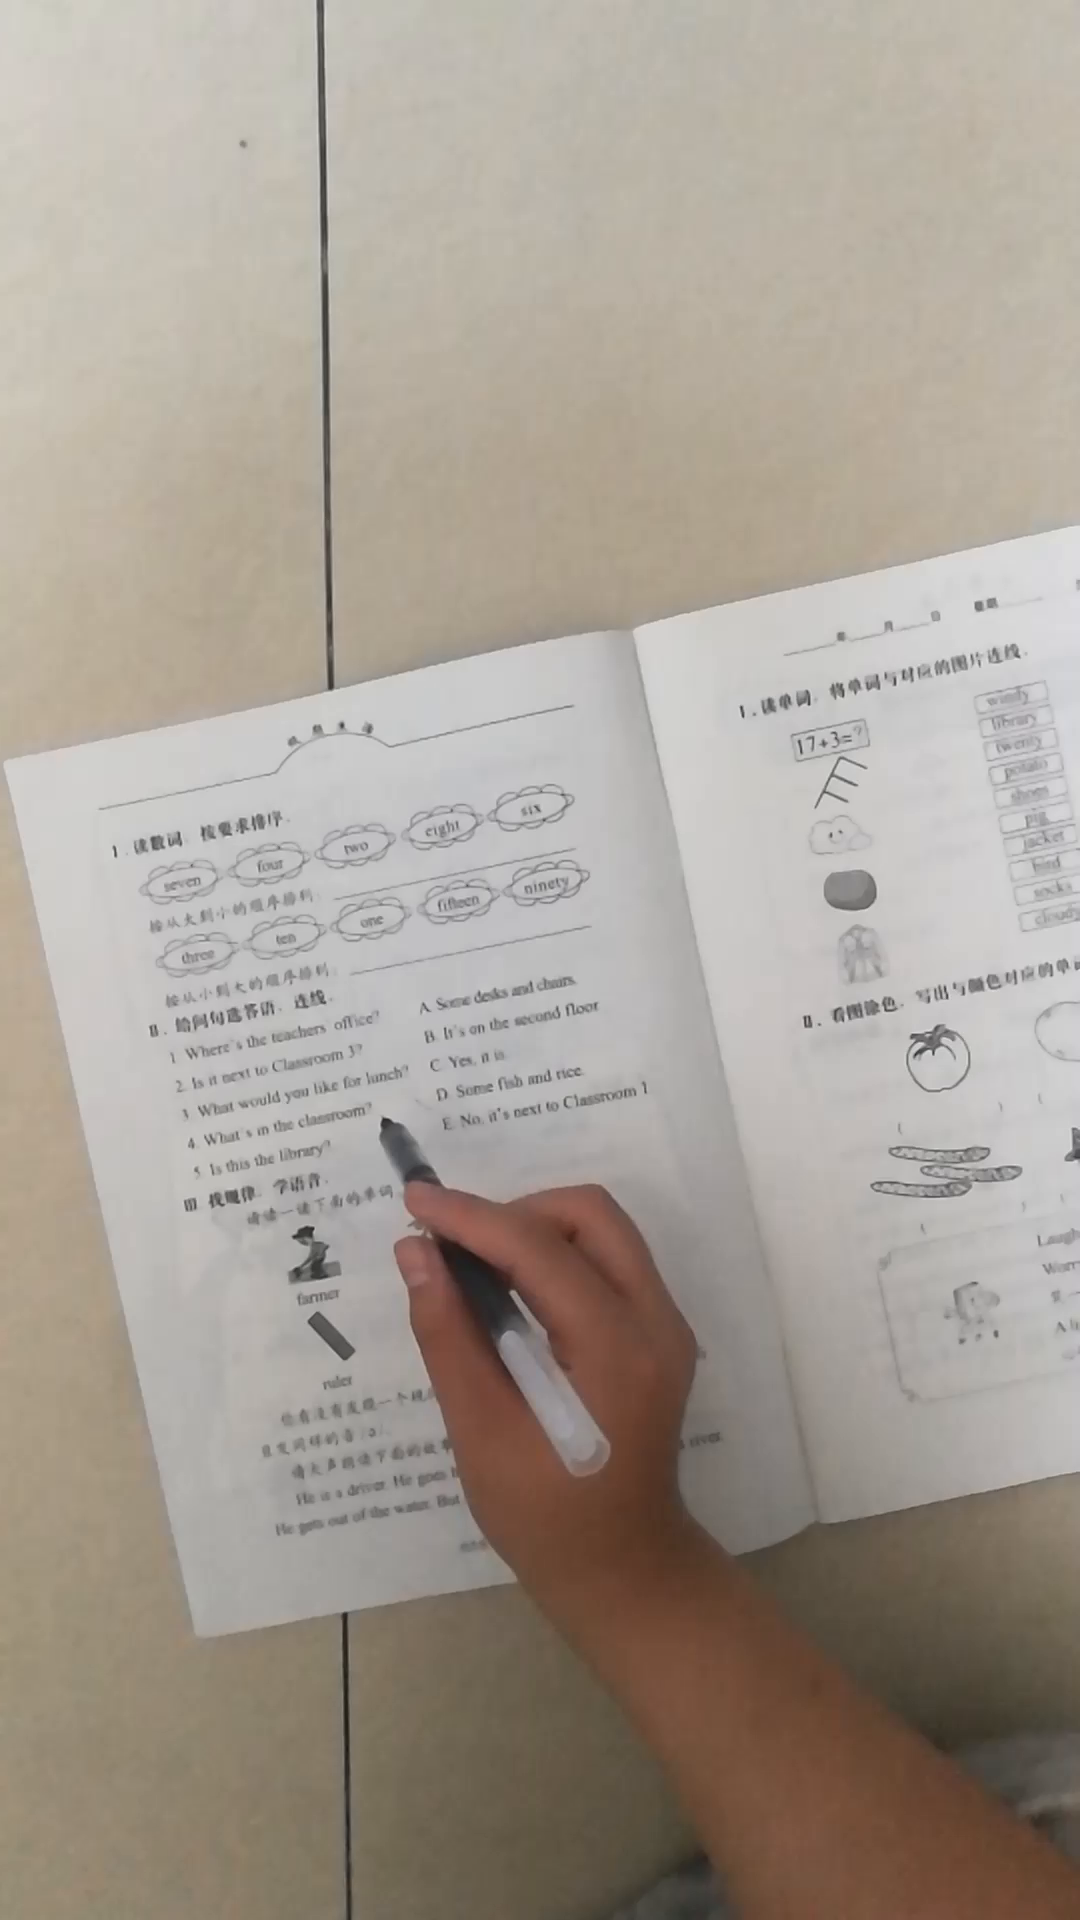 假期乐园
I. 读数词，按要求排序。
seven four two eight six
按从大到小的顺序排列：
three ten one fifteen ninety
按从小到大的顺序排列：
II. 给问句选答语，连线。
1. Where's the teachers' office? A. Some desks and chairs.
2. Is it next to Classroom 3? B. It's on the second floor
3. What would you like for lunch? C. Yes, it is
4. What's in the classroom? D. Some fish and rice.
5. Is this the library? E. No, it's next to Classroom 1
III 找规律，学语音。
请读一读下面的单词
farmer
ruler
你有没有发现一个规
且发同样的音/ə/。
请大声朗读下面的故事
He is a driver. He goes river.
He gets out of the water. But
年 月 日 星期
I. 读单词，将单词与对应的图片连线。
17+3=?
windy
library
twenty
potato
shoes
pig
jacket
bird
socks
cloudy
II. 看图涂色，写出与颜色对应的单词
( ) (
( ) (
Laugh
Worry